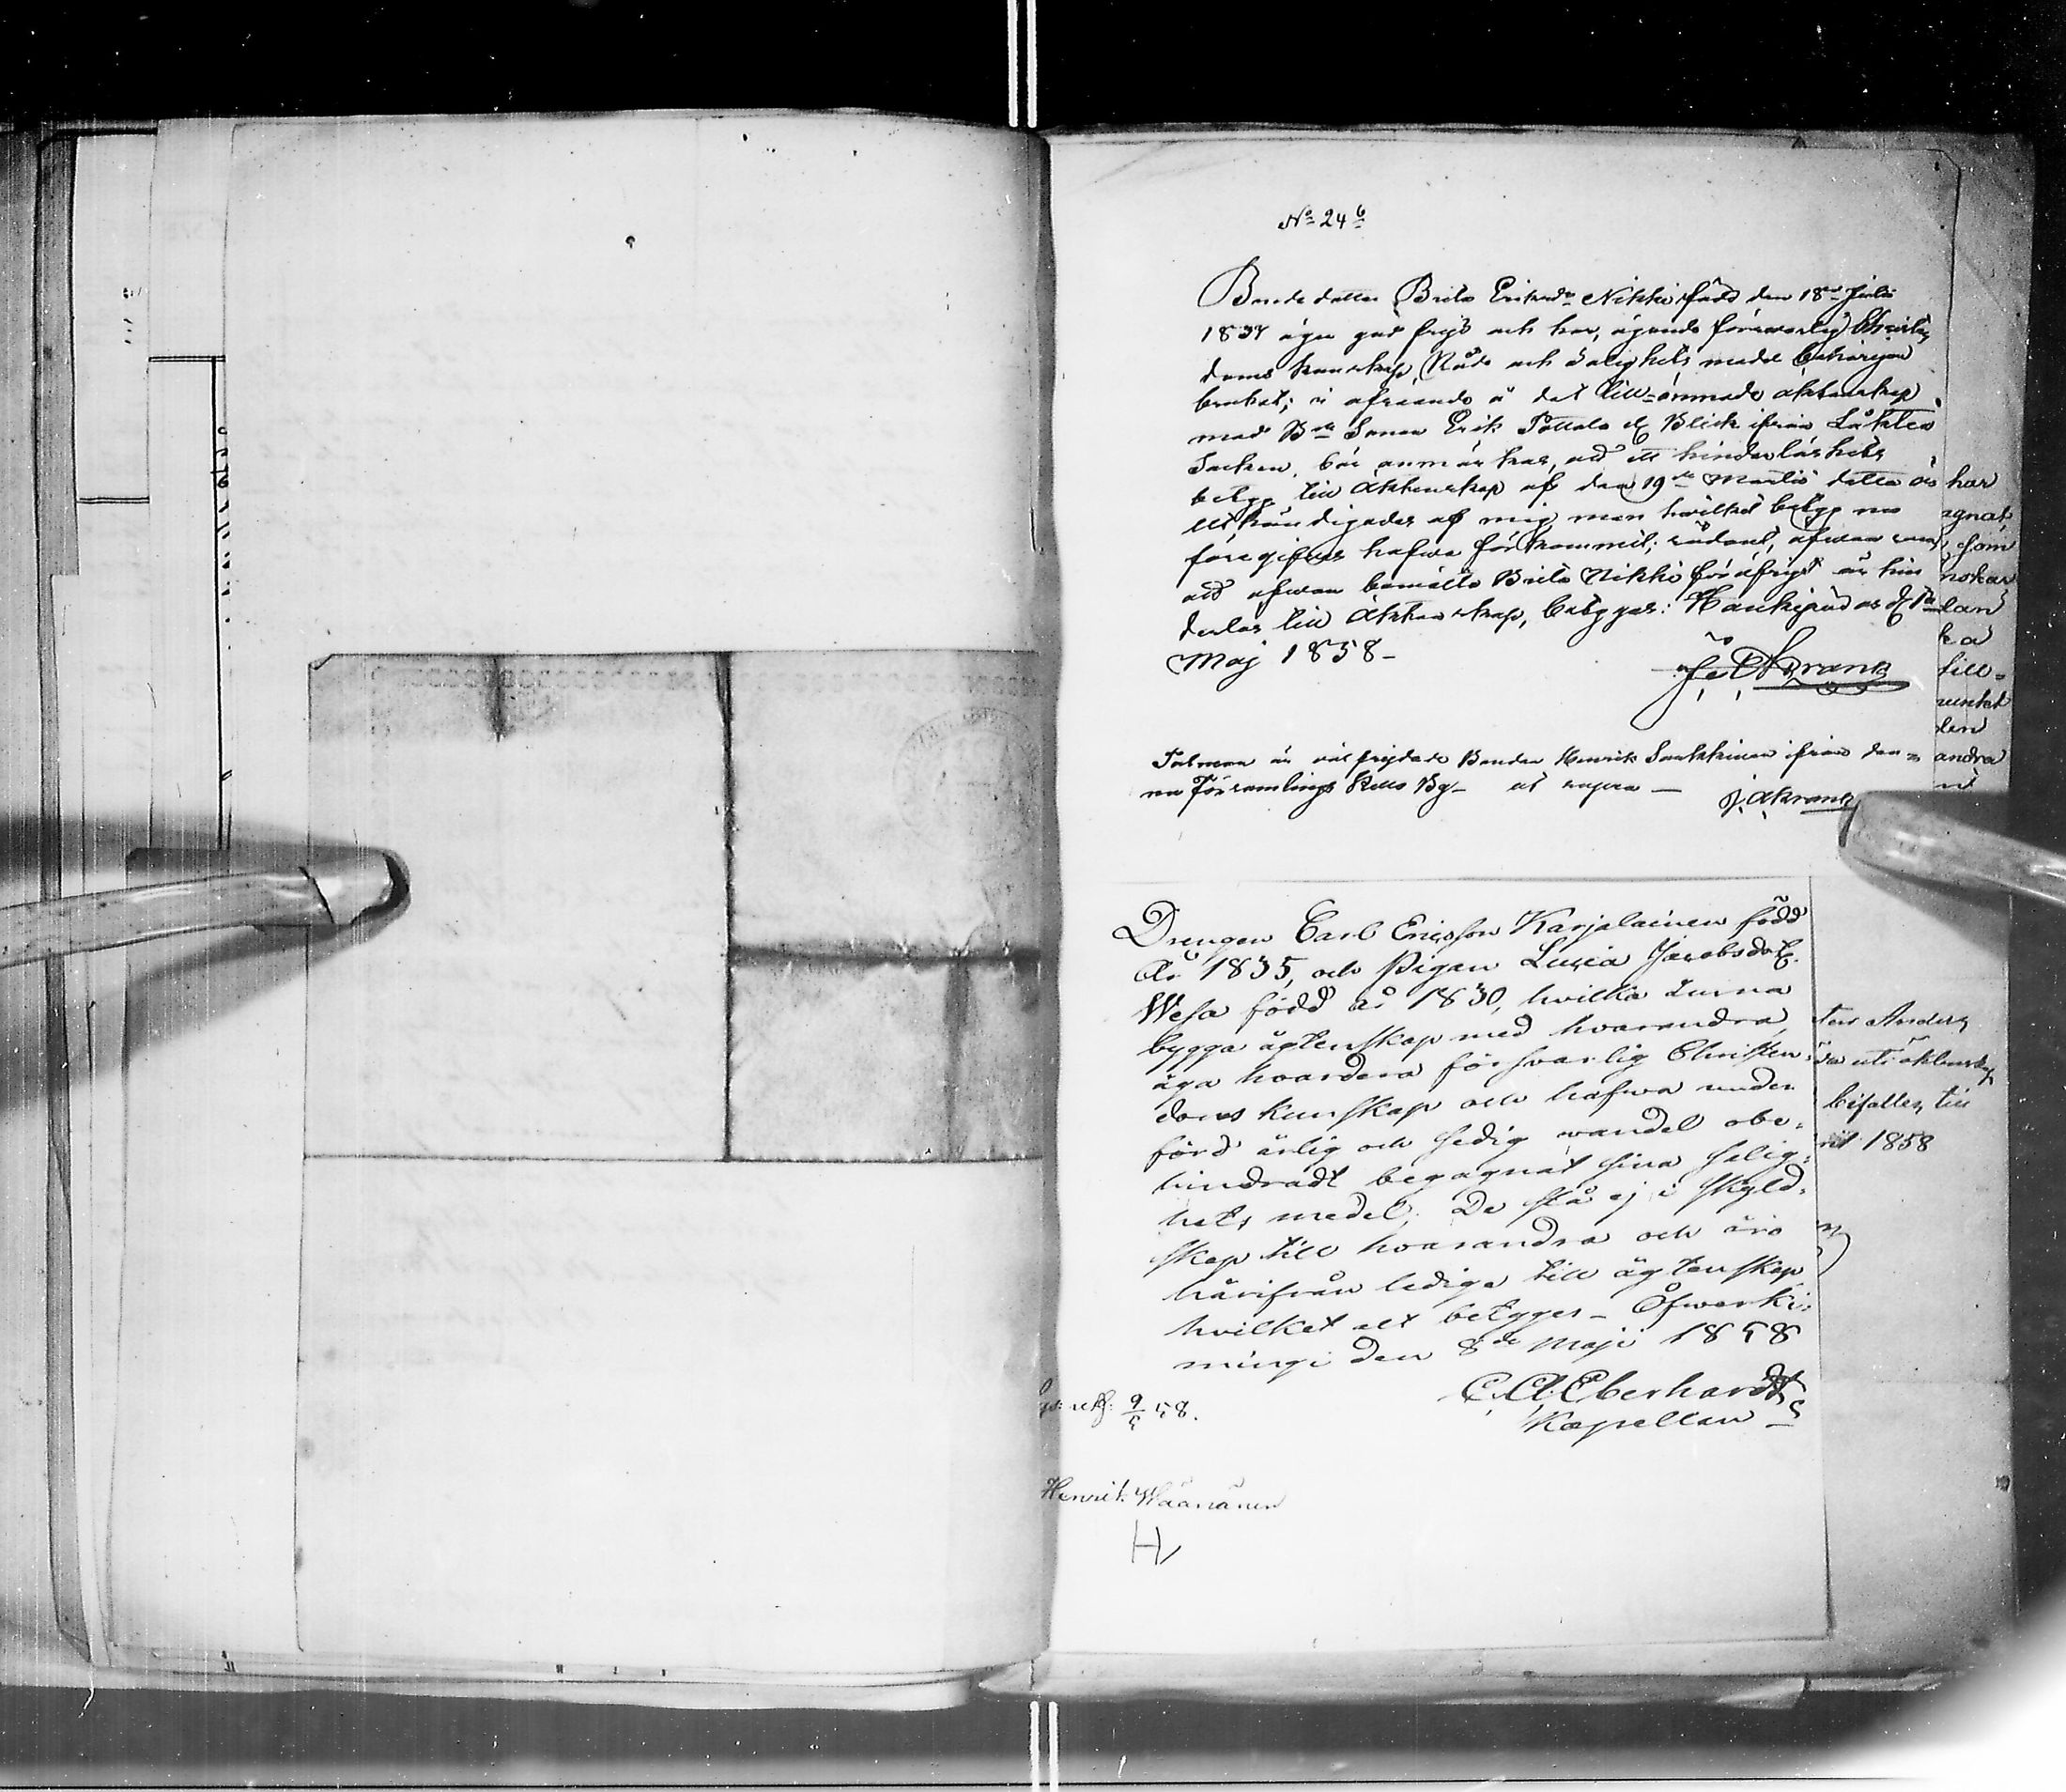 No 24 6
Bondedottren Brita Eriksdr Nikki född den 18de Julii
1837 äger god frejd och har, ägande försvarlig Christen
doms kunskap, Nåde och Salighets medel behörigen
brukat; i afseende å det till-ämnade äktenskap
med Bde Sonen Erik Pottala Blick ifrån Låktea
Socken, bör anmärkas, att ett hinderlöshets
betyg till Äktenskap af den 19de Martii detta år
af mig, men hvilket betyg nu
föregifves hafwa förkommit; sådant, äfwen som
att äfwen bemälte Brita Nikki är hin
derlös till Äktenskap, betygas: Haukipudas
Maj 1858-
J. Åkrans
Talman är välfrejdade Bonden Henrik Sankkinen ifrån den-
na Församlings Kello By- ut supra —
J. Åkrans
har
agnat
som
nskar
lan
ka
till=
runtet
den
andra
Drengen Carl Ericsson Karjalainen född
År 1835, och Pigan Lucia Jacobsdotr.
Wesa född år 1830, hvilka kunna
bygga ägtenskap med hvarandra,
äga hvardera försvarlig Christen-
doms kunskap och hafwa under
förd ärlig och sedig wandel obe-
hindradt begagnat sina salig-
hets medel; De stå ej i skyld-
skap till hvarandra och äro
härifrån lediga till ägtenskap
hvilket alt betygges - Öfwerki-
mingi den 8de Maji 1858
C. A. Eberhardt
Kapellan
9/5 58.
Henrik Wäänänen
H
ter Anders
da uti äktenskap
bifalles till
ril 1858